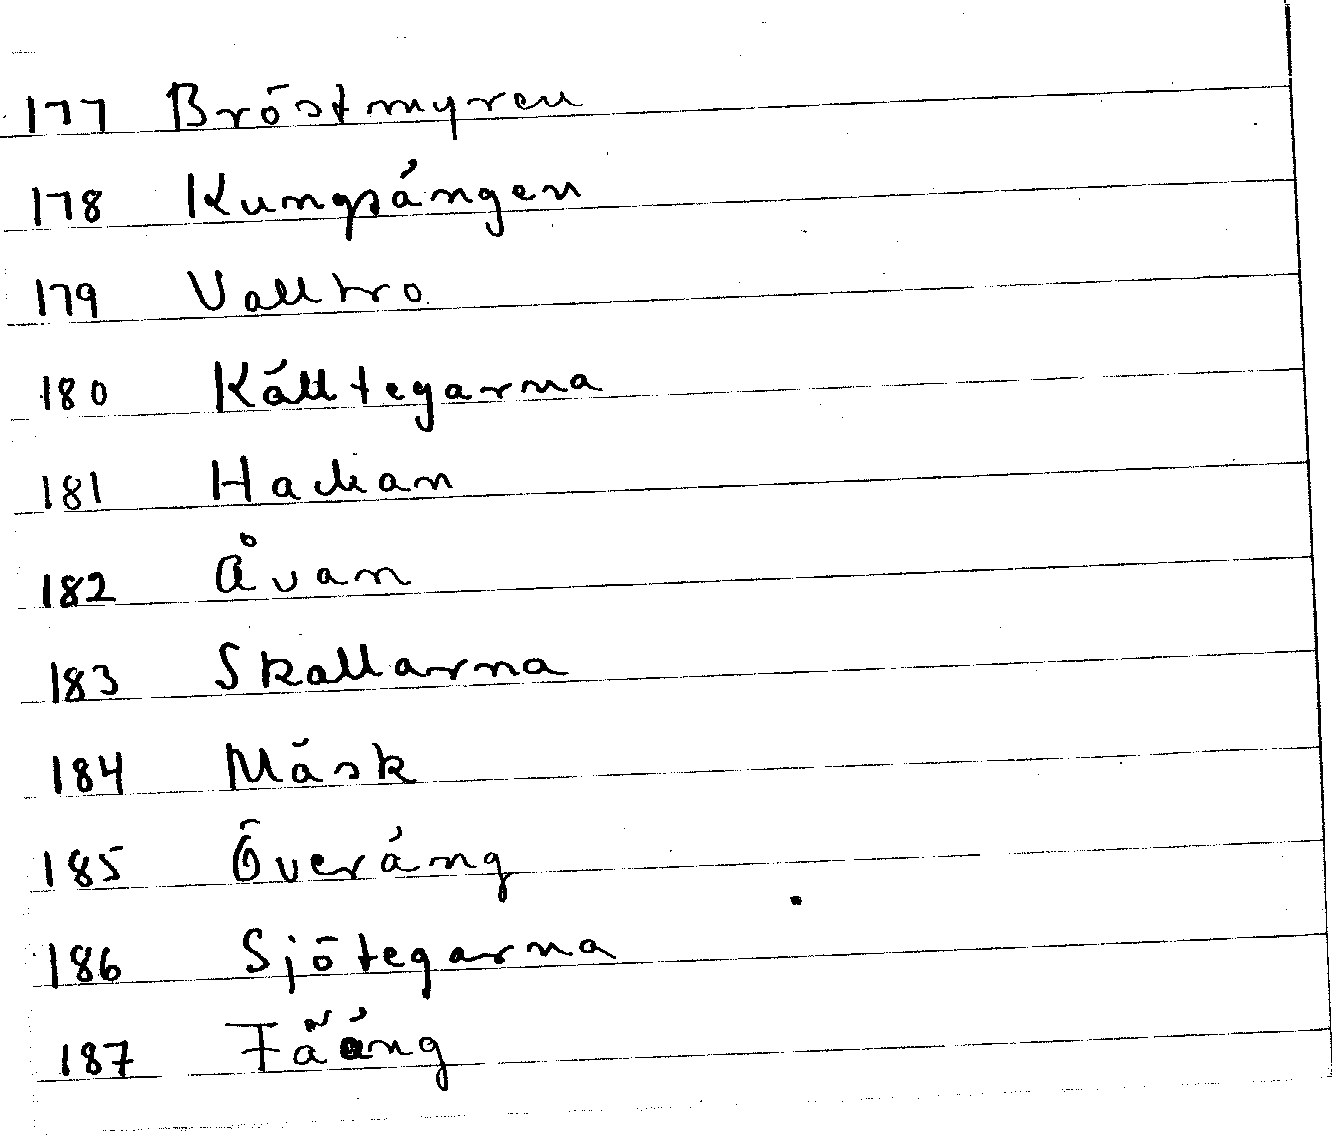 177 Bröstmyren
178 Kungsängen
179 Valltro
180 Källtegarna
181 Hackan
182 Åvan
183 Skallarna
184 Mäsk
185 Överäng
186 Sjötegarna
187 Fääng